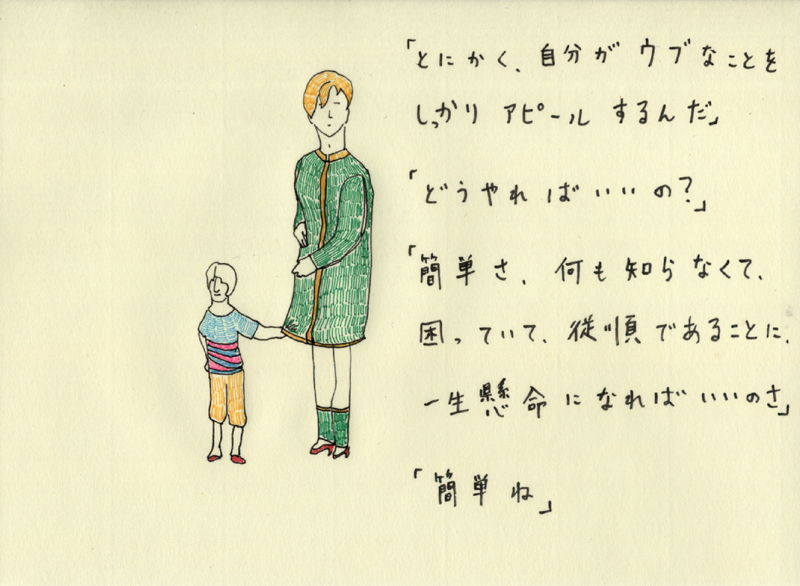 「とにかく、自分がウブなことを
しっかりアピールするんだ」
「どうやればいいの?」
「簡単さ、何も知らなくて、
困っていて、従順であることに、
一生懸命になればいいのさ」
「簡単ね」